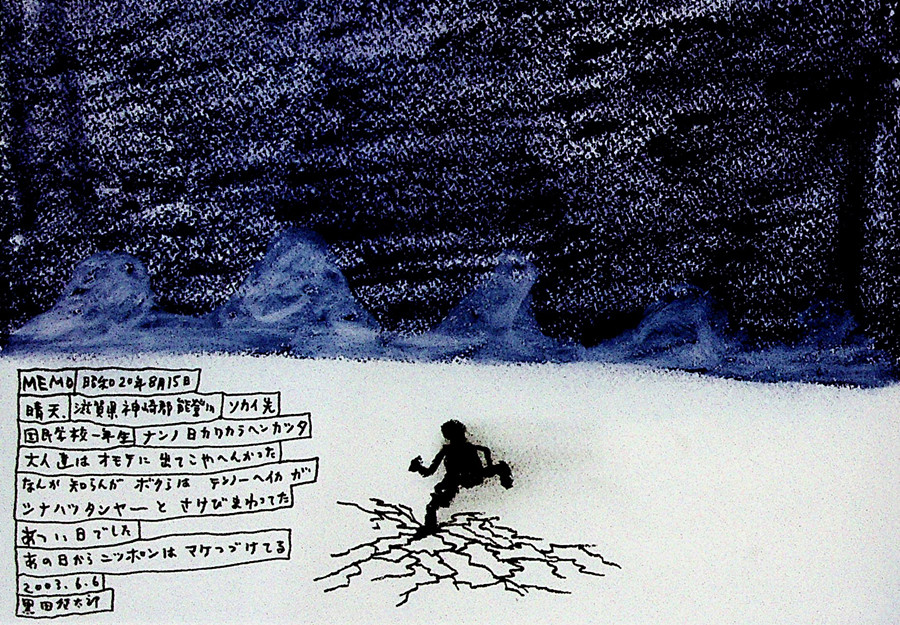 MEMO 昭和20年8月15日
晴天. 滋賀県神崎郡能登川 ソカイ先
国民学校一年生 ナンノ日カワカラヘンカッタ
大人達はオモテに出てこやへんかった
なんか知らんがボクらはテンノーヘイカガ
シナハッタンヤーとさけびまわってた
あつい日でした
あの日からニッポンはマケつづけてる
2003.6.6
黒田征太郎